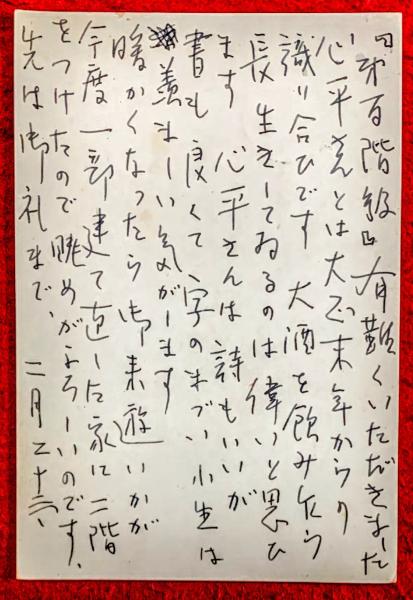 『第百階級』有難くいただきました
心平さんとは大正末年からの
識り合ひです 大酒を飲み乍ら
長生きしてゐるのは偉いと思ひ
ます 心平さんは詩もいいが
書も良くて、字のまづい小生は
羨ましい気がします
暖かくなったら御来遊いかが
今度一部建て直した家に二階
をつけたので眺めがよろしいのです、
先は御礼まで、 二月二十三、